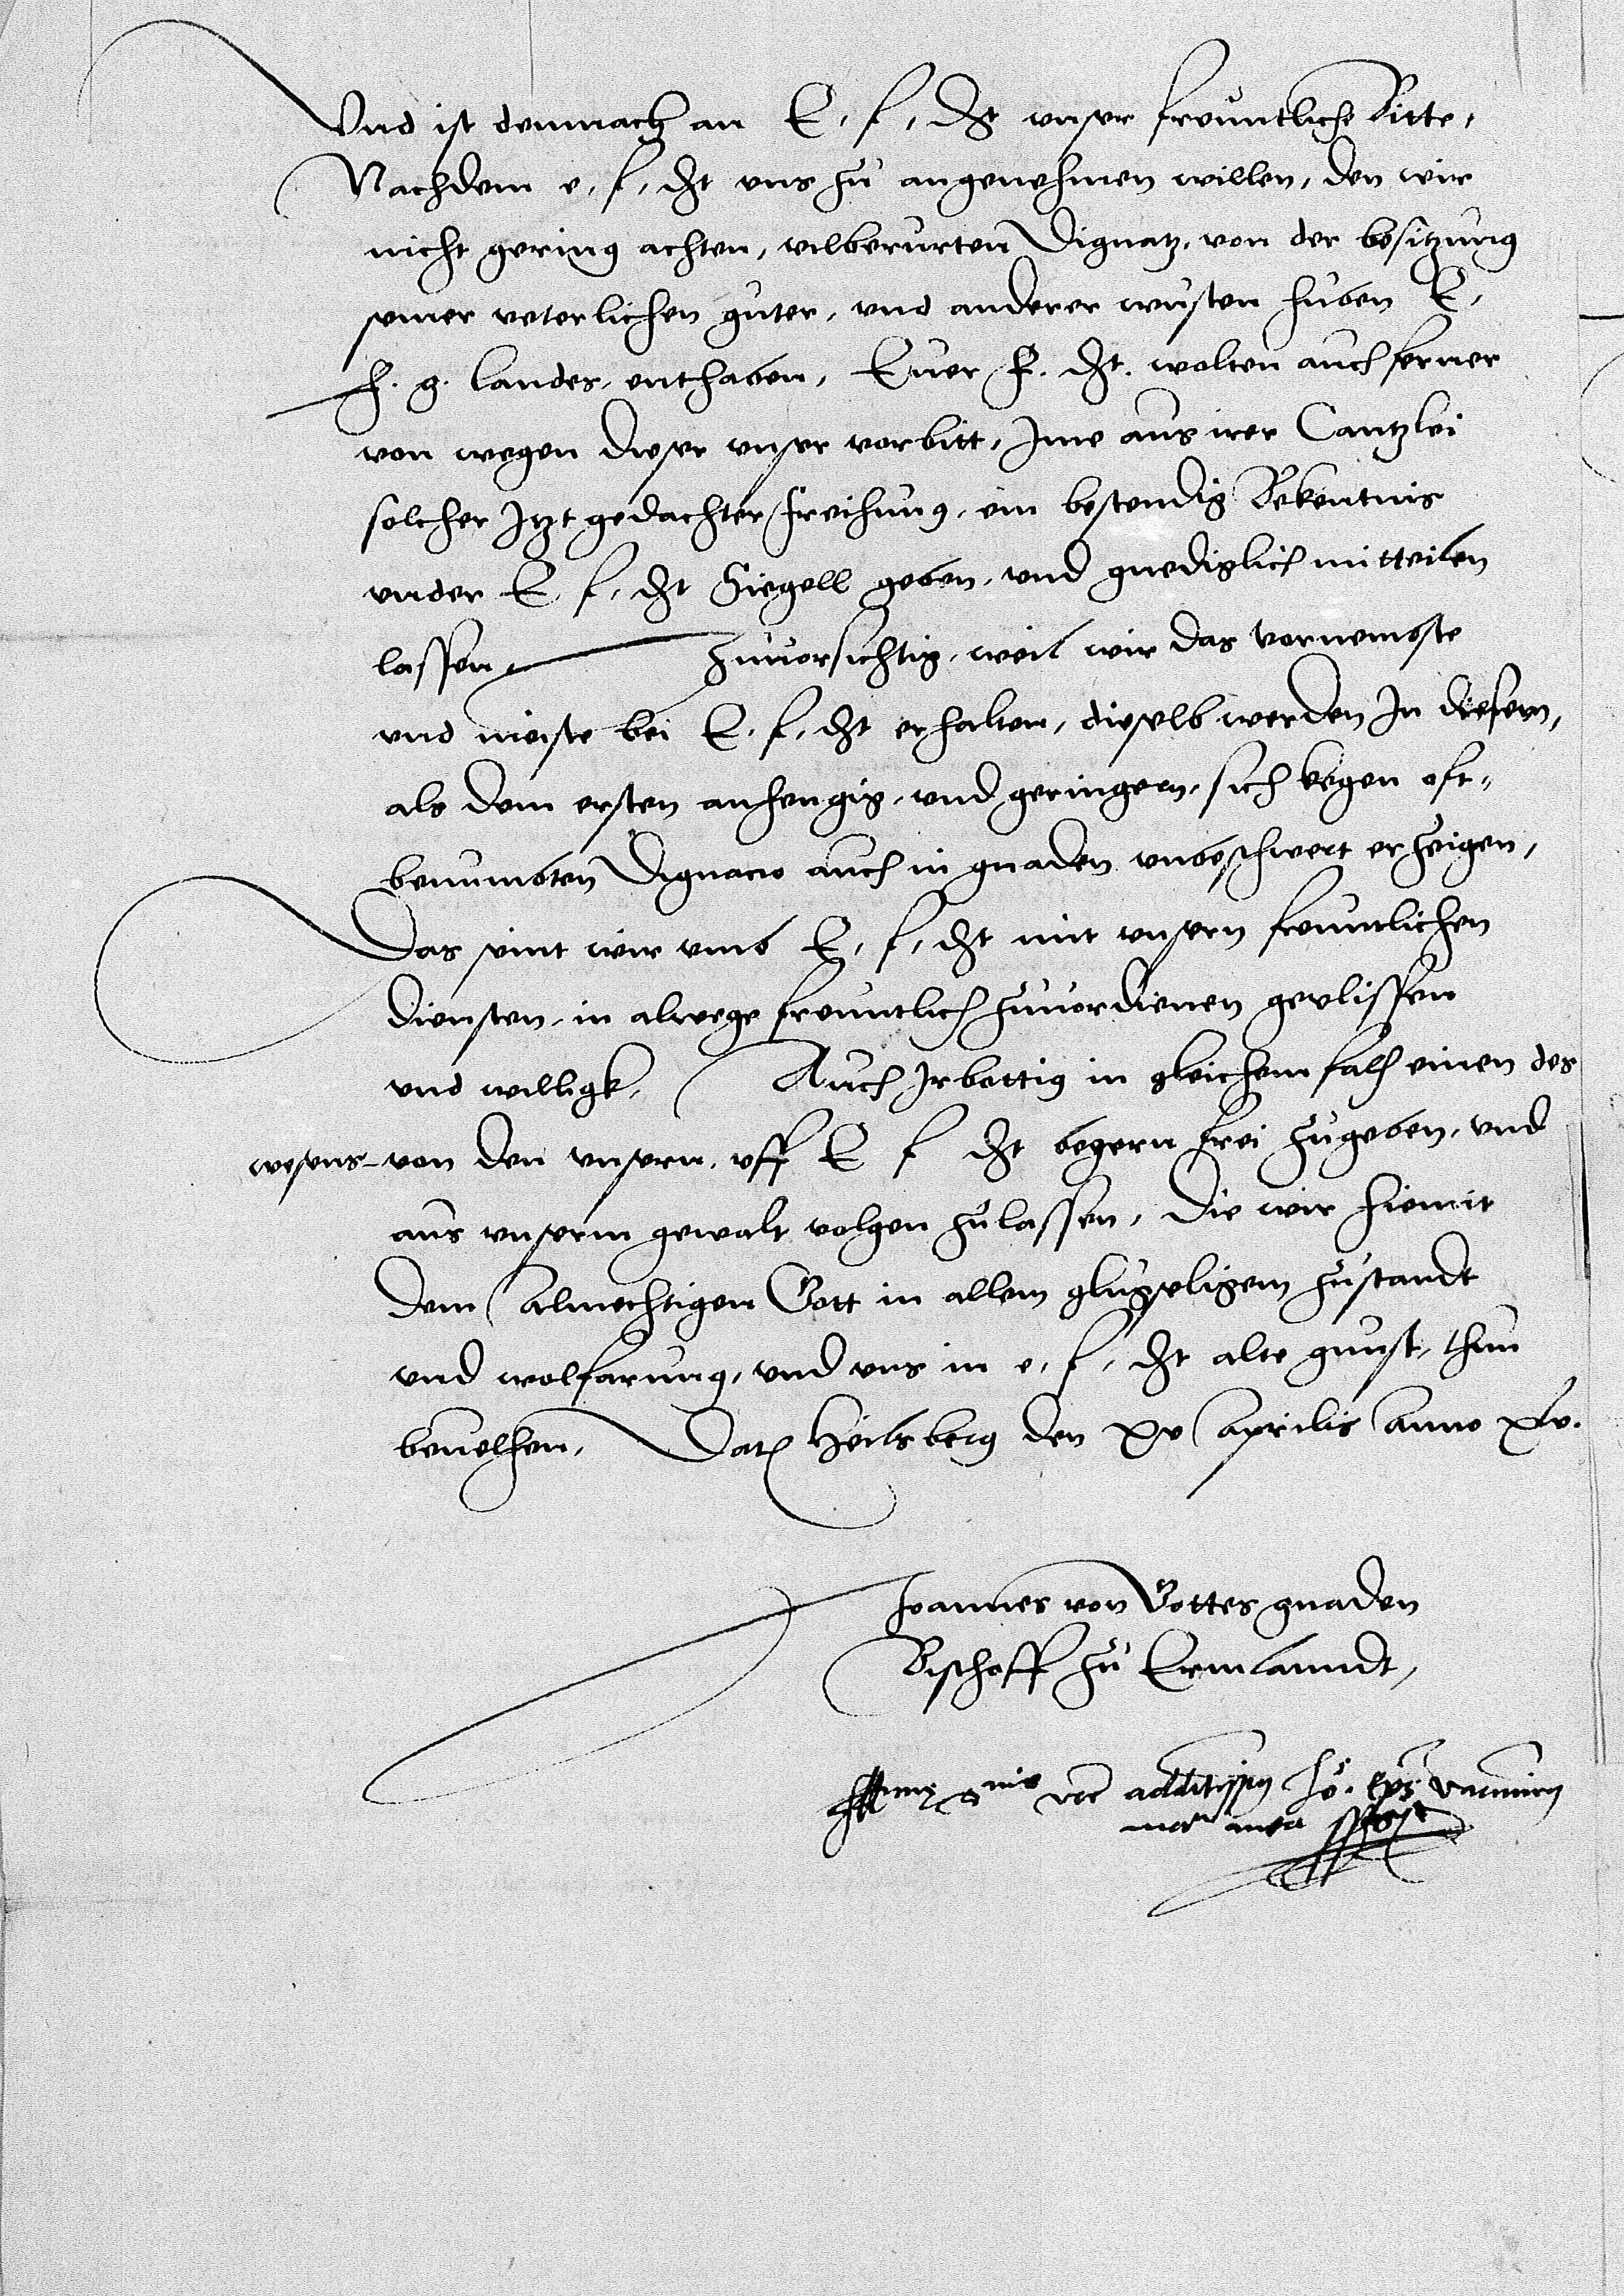 Vnd ist demnach an E. f. dt vnser freuntliche Bitte,
Nachdem e. f. dt vns zu angenehmen willen, den wir
nicht gering achten, vilberurten Dignatz, von der besitzung
seiner veterlichen guter, vnd anderer wusten huben E.
f. g. landes, enthaben, Euer F. dt. wolten auch ferner
von wegen dieser vnser vorbitt, Jme aus irer Cantzlei
solcher Jtzt gedachter freihung, ein bestendig Bekentnis
vnder E f. dt Siegell geben, vnd gnediglich mitteilen
lassen, Zuuorsichtig, weil wir das vornembste
vnd meiste bei E. f. dt erhalten, dieselb werden Jn diesem,
als dem ersten anhengig, vnd geringern, sich kegen oft-
benumbten Dignacio auch in gnaden vnbeschwert erzeigen,
Das seint wir vmb E. f. dt mit vnsern freuntlichen
diensten, in alwege freuntlich zuuordienen gevlissen
vnd willigk. Auch Jrbottig in gleichem fall einen des
wesens von den vnsern, vff E f dt begern frei zugeben, vnd
aus vnserm gewalt volgen zulassen, Die wir hiemit
dem Almechtigen Gott in allem gluszeligem zustandt
vnd wolfarung, vnd vns in e. f. dt alte gunst, thun
beuelhen, Dat Heilsberg den xv Aprilis Anno xlv.
Joannes von Gottes gnaden
Bischoff zu Ermlanndt,
Jo. eps Varmien
manu mea sspst